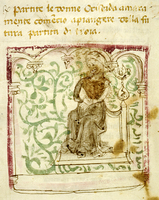 Partite le donne Criseida amara
mente comẽcio a piangere
tura partita di troia.